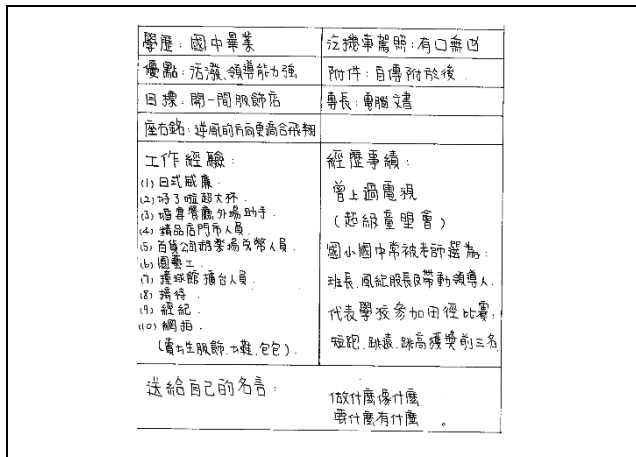 學歷：國中畢業
汽機車駕照：有口無凶
優點：活潑、領導能力強
附件：自傳附於後.
目標：開一間服飾店
專長：電腦文書
座右銘：逆風的方向更適合飛翔
工作經驗：
(1) 日式威廉.
(2) 好了啦超大杯.
(3) 婚宴餐廳外場助手
(4) 精品店門市人員
(5) 百貨公司遊樂場兌幣人員
(6) 園藝工.
(7) 撞球館櫃台人員.
(8) 接待.
(9) 經紀.
(10) 網拍.
(賣女生服飾、女鞋、包包).
經歷事績：
曾上過電視
(超級童盟會)
國小國中常被老師選為：
班長、風紀股長及帶動領導人.
代表學校參加田徑比賽：
短跑、跳遠、跳高獲獎前三名
送給自己的名言：
做什麼像什麼
要什麼有什麼。